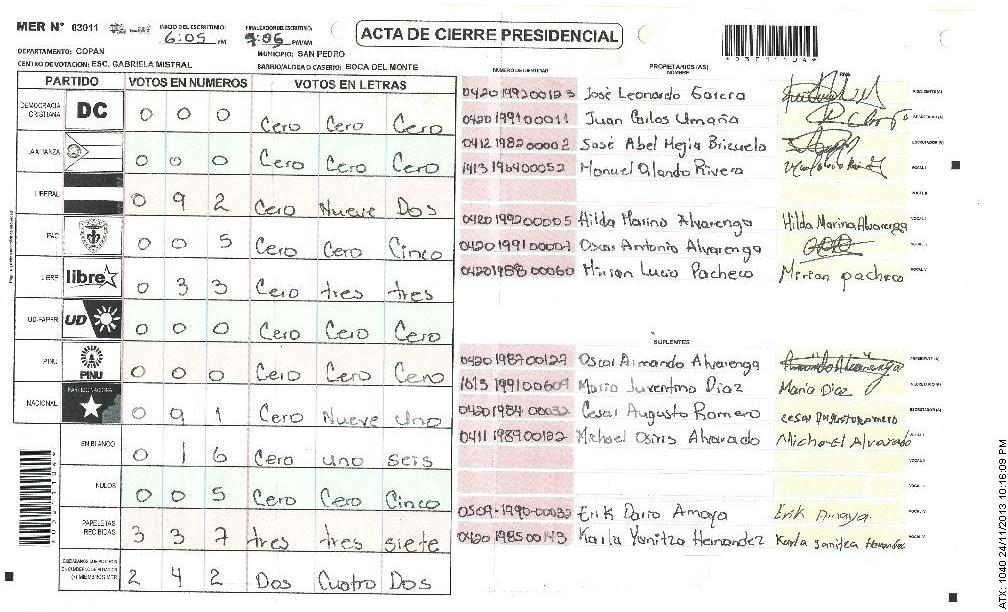 MER N° 03011 INICIO DEL ESCRUTINIO: 6:05 PM FINALIZACION DEL ESCRUTINIO: 9:05 PM/AM ACTA DE CIERRE PRESIDENCIAL
DEPARTAMENTO: COPAN MUNICIPIO: SAN PEDRO
CENTRO DE VOTACION: ESC. GABRIELA MISTRAL BARRIO/ALDEA O CASERIO: BOCA DEL MONTE
PARTIDO VOTOS EN NUMEROS VOTOS EN LETRAS
DEMOCRACIA CRISTIANA DC 0 0 0 Cero Cero Cero
LA ALIANZA 0 0 0 Cero Cero Cero
LIBERAL 0 9 2 Cero Nueve Dos
FAC 0 0 5 Cero Cero Cinco
LIBRE libre 0 3 3 Cero tres tres
UD-FAPER UD 0 0 0 Cero Cero Cero
PINU PINU 0 0 0 Cero Cero Cero
NACIONAL 0 9 1 Cero Nueve Uno
EN BLANCO 0 1 6 Cero uno seis
NULOS 0 0 5 Cero Cero Cinco
PAPELETAS RECIBIDAS 3 3 7 tres tres siete
(+) MIEMBROS MER 2 4 2 Dos Cuatro Dos
NUMERO DE IDENTIDAD PROPIETARIOS (AS)
NOMBRE FIRMA
0420199200123 José Leonardo Garcia PRESIDENTE (A)
0420199100011 Juan Carlos Umaña SECRETARIO (A)
0412198200002 José Abel Mejia Brizuela ESCRUTADOR (A)
1413196400052 Manuel Olando Rivera VOCAL I
VOCAL II
0420199200005 Hilda Marina Alvarenga Hilda Marina Alvarenga
0420199100007 Oscar Antonio Alvarenga
0420198800060 Mirian Lucia Pacheco Mirian pacheco VOCAL V
SUPLENTES
0420198700127 Oscar Armando Alvarenga PRESIDENTE (A)
1613199100609 Maria Juventina Diaz Maria Diaz SECRETARIO (A)
0420198400032 Cesar Augusto Romero cesar Augusto romero ESCRUTADOR (A)
0411198900182 Michael Osiris Alvarado Michael Alvarado VOCAL I
VOCAL II
0509-1990-00032 Erik Dario Amaya Erik Amaya VOCAL IV
0420198500143 Karla Yanitza Hernandez Karla Yanitza Hernandez VOCAL V
ATX: 1040 24/11/2013 10:16:09 PM